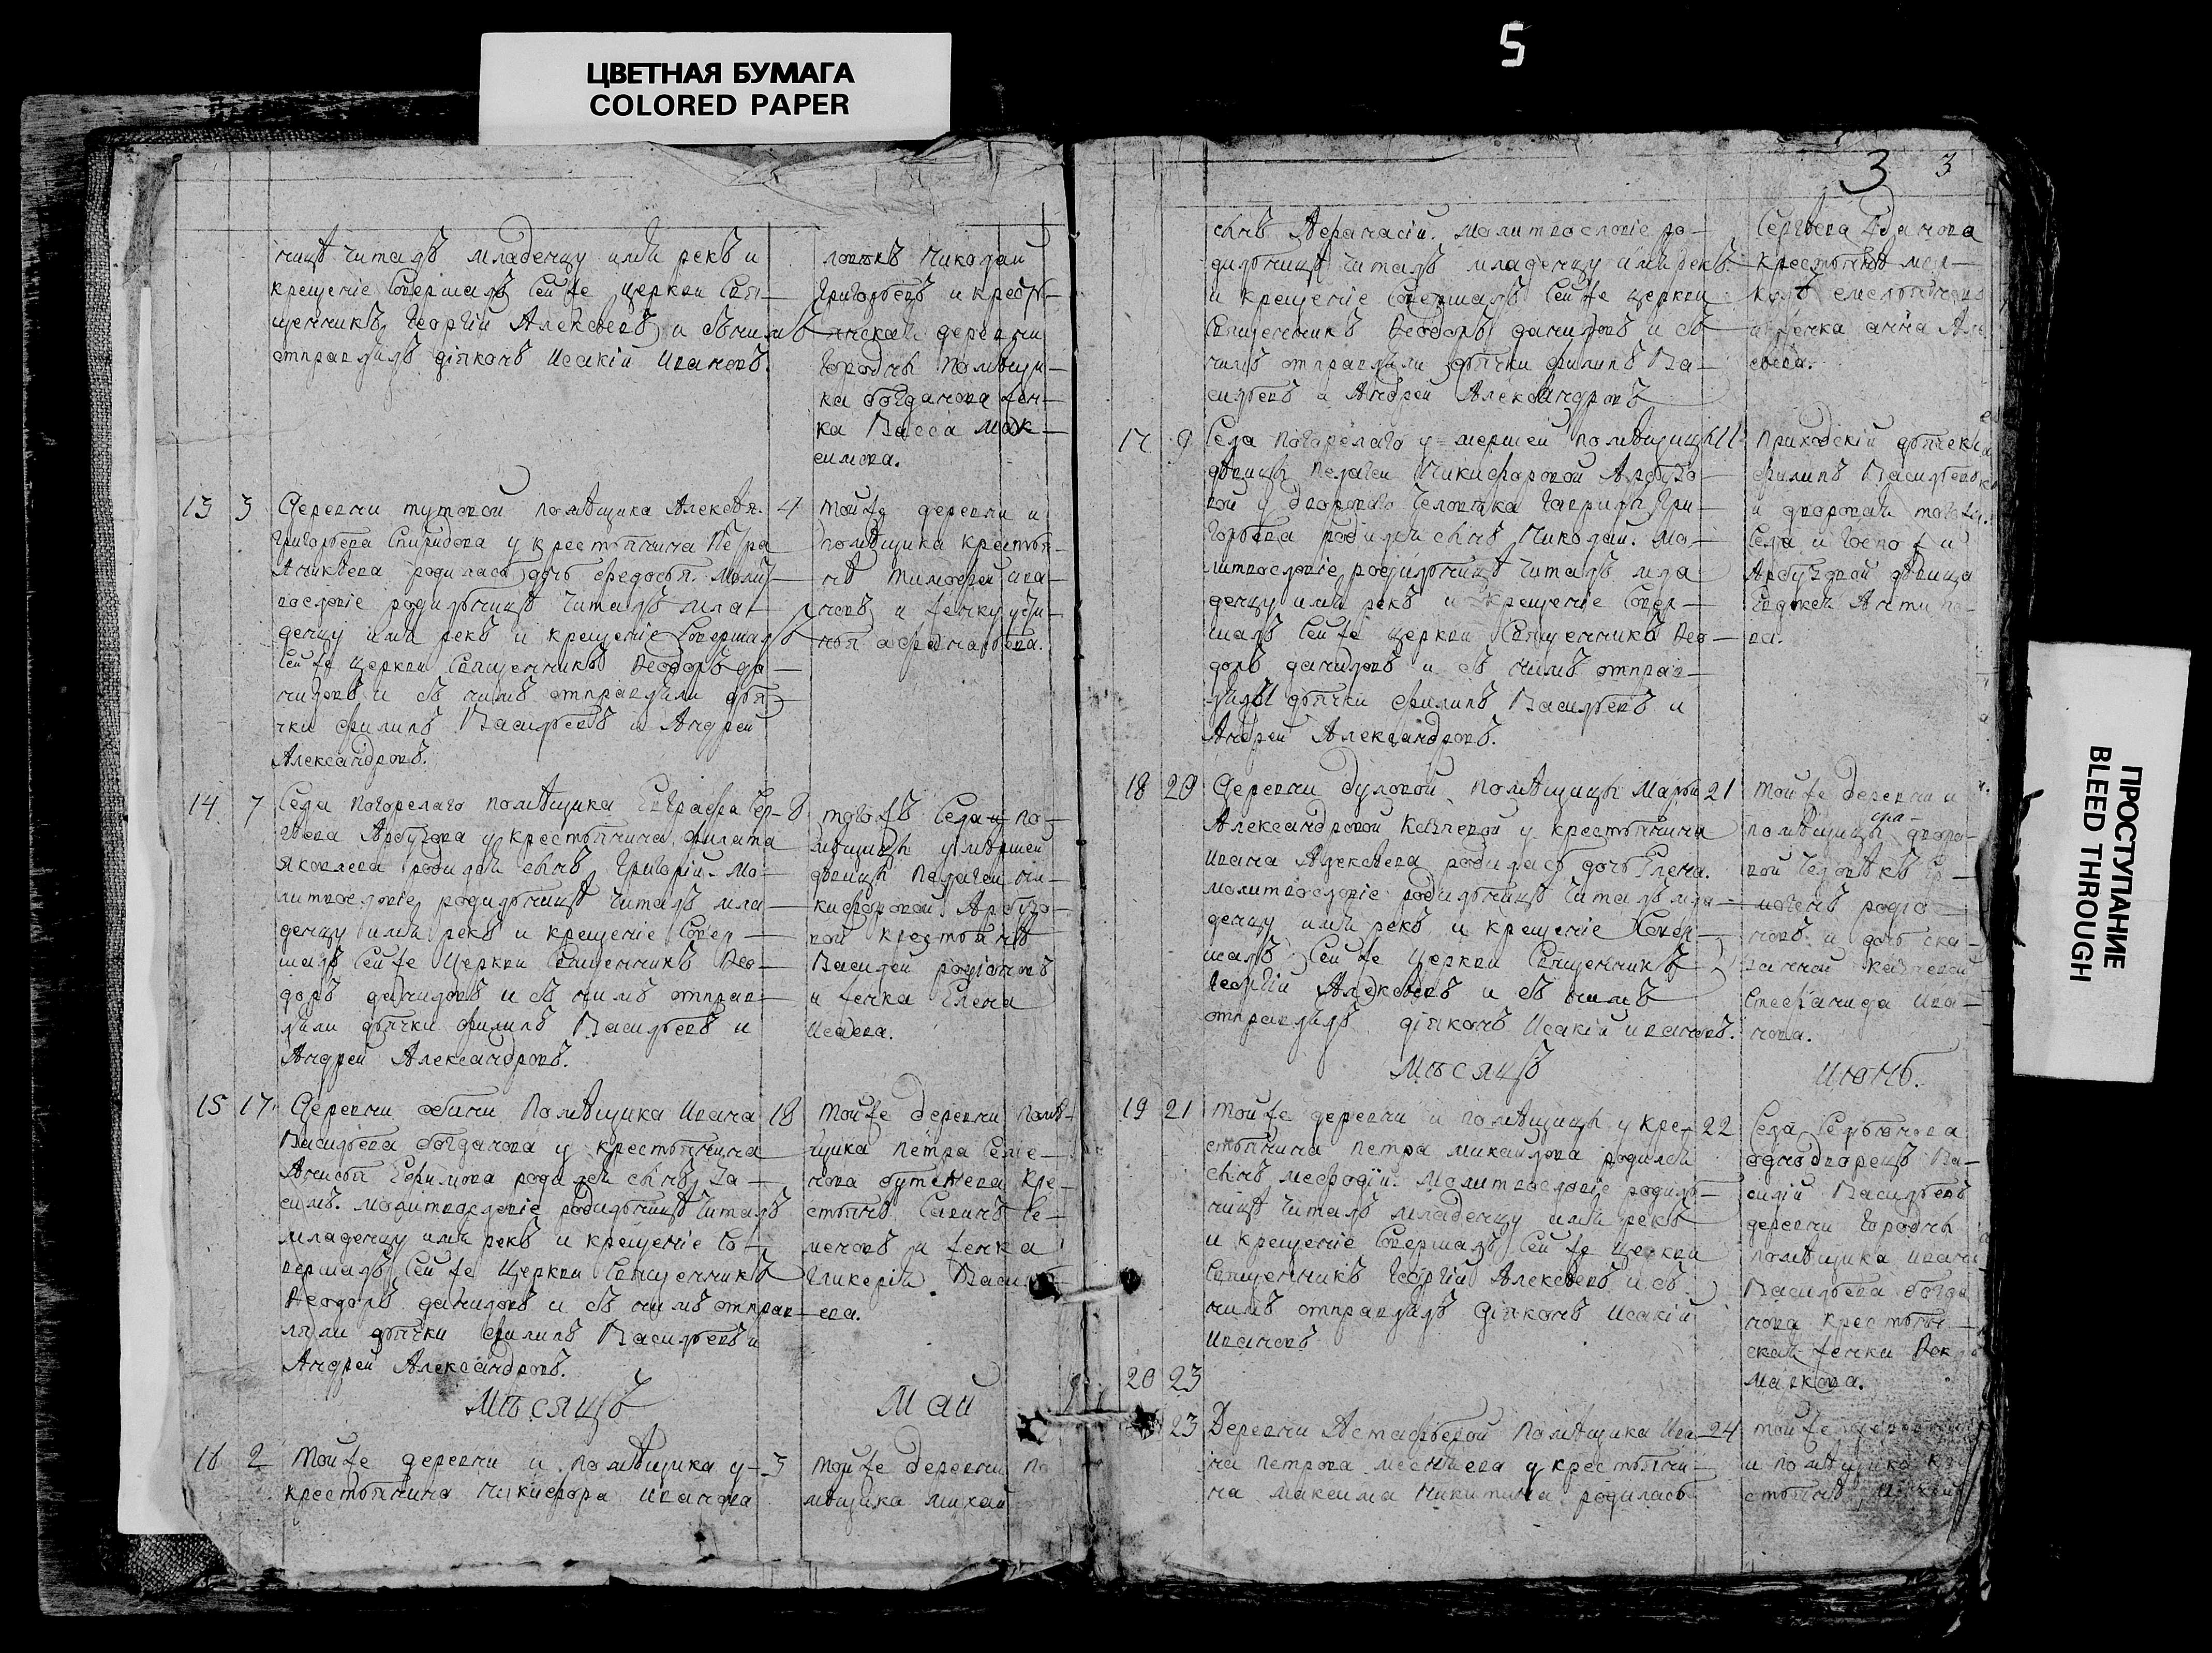 5
ЦВЕТНАЯ БУМАГА
COLORED PAPER
ПРОСТУПАНИЕ
BLEED THROUGH
ницѣ читалъ младенцу имя рекъ и
крещеніе совершалъ сей же церкви свя-
щенникъ Георгій Алексѣевъ и съ нимъ
отправлялъ діяконъ Исакій Ивановъ.
ловѣкъ Николай
Григорьевъ и кресть-
янской деревни
Городни помѣщи-
ка Богданова жен-
ка Васса Мак-
симова.
13 3 Деревни тутовой помѣщика Алексѣя 4
Григорьева Спиридова у крестьянина Петра
родилась дочь Федосья. Молит-
вословіе родильницѣ читалъ мла-
денцу имя рекъ и крещеніе совершалъ
сей же церкви священникъ Ѳеодоръ Да-
ниловъ и съ нимъ отправляли дья-
чки Филипъ Васильевъ и Андрей
Александровъ.
той же деревни и
помѣщика крестья-
нъ Тимофей Ива-
новъ и женку
14 7 Села Погорелаго помѣщика Евграфа Сер- 8
гѣева Арбузова у крестьянина Филата
Яковлева родился сынъ Григорій. Мо-
литвословіе родильницѣ читалъ мла-
денцу имя рекъ и крещеніе совер-
шалъ сей же церкви священникъ Ѳео-
доръ Даниловъ и съ нимъ отправ-
ляли дьячки Филипъ Васильевъ и
Андрей Александровъ.
тогожъ села и по-
мѣщицы умершей
дѣвицы Пелагеи Ни-
кифоровой Арбузо-
вой крестьянъ
Василей Родіоновъ
и женка Елена
Исаева.
15 17 Деревни помѣщика Ивана 18
Васильева Богданова у крестьянина
Ефимова родился сынъ За-
симъ. Молитвословіе родильницѣ читалъ
младенцу имя рекъ и крещеніе со-
вершалъ сей же церкви священникъ
Ѳеодоръ Даниловъ и съ нимъ отправ-
ляли дьячки Филипъ Васильевъ и
Андрей Александровъ.
той же деревни помѣ-
щика Петра Семе-
нова Бутенева кре-
стьянъ Се-
меновъ и женка
Гликерія Василь-
ева.
Мѣсяцъ Май
16 2 Той же деревни и помѣщика у 3
крестьянина Никифора Иванова
той же деревни по
мѣщика Михай
3 3
сынъ Афанасій. Молитвословіе ро-
дильницѣ читалъ младенцу имя рекъ
и крещеніе совершалъ сей же церкви
священникъ Ѳеодоръ Даниловъ и съ
нимъ отправляли дьячки Филипъ Ва-
сильевъ и Андрей Александровъ
Сергѣева
крестьянъ
женка Анна Але
ѣева.
17 9 Села Погорелаго умершей помѣщицы 11
дѣвицы Пелагеи Никифоровой Арбузо-
вой у двороваго человѣка Гаврилы Гри-
горьева родился сынъ Николай. Мо-
литвословіе родильницѣ читалъ мла
денцу имя рекъ и крещеніе совер-
шалъ сей же церкви священникъ Ѳео-
доръ Даниловъ и съ нимъ отправ-
лялы дьячки Филипъ Васильевъ и
Андрей Александровъ.
Приходскій дьячекъ
Филипъ Васильевъ
и дворовая тогоже
села и госпожи
Арбузовой дѣвица
Антипо-
ва.
18 20 Деревни Дуловой помѣщицы Марьи 21
Александровой у крестьянина
Ивана Алексѣева родилась дочь Елена.
Молитвословіе родильницѣ читалъ мла-
денцу имя рекъ и крещеніе совер-
шалъ сей же церкви священникъ
Георгій Алексѣевъ и съ нимъ
отправлялъ діяконъ Исакій Ивановъ.
той же деревни и
помѣщицы дворо-
вой человѣкъ
Родіо-
новъ и дочь ска-
занной
Стефанида Ива-
нова.
Мѣсяцъ Июнь.
19 21 Той же деревни и помѣщицы у кре- 22
стьянина Петра Михайлова родился
сынъ Мефодій. Молитвословіе родиль-
ницѣ читалъ младенцу имя рекъ
и крещеніе совершалъ сей же церкви
священникъ Георгій Алексѣевъ и съ
нимъ отправлялъ діяконъ Исакій
Ивановъ
Села
однодворецъ Ва-
силій Васильевъ
деревни Городни
помѣщика Ивана
Васильева Богда
нова крестьян-
ская женка
Маркова.
20 23
23 Деревни Астафьевой помѣщика Ива- 24
на Петрова у крестьяни-
на Максима Никитина родилась
той же деревни
и помѣщика кре
стьянъ